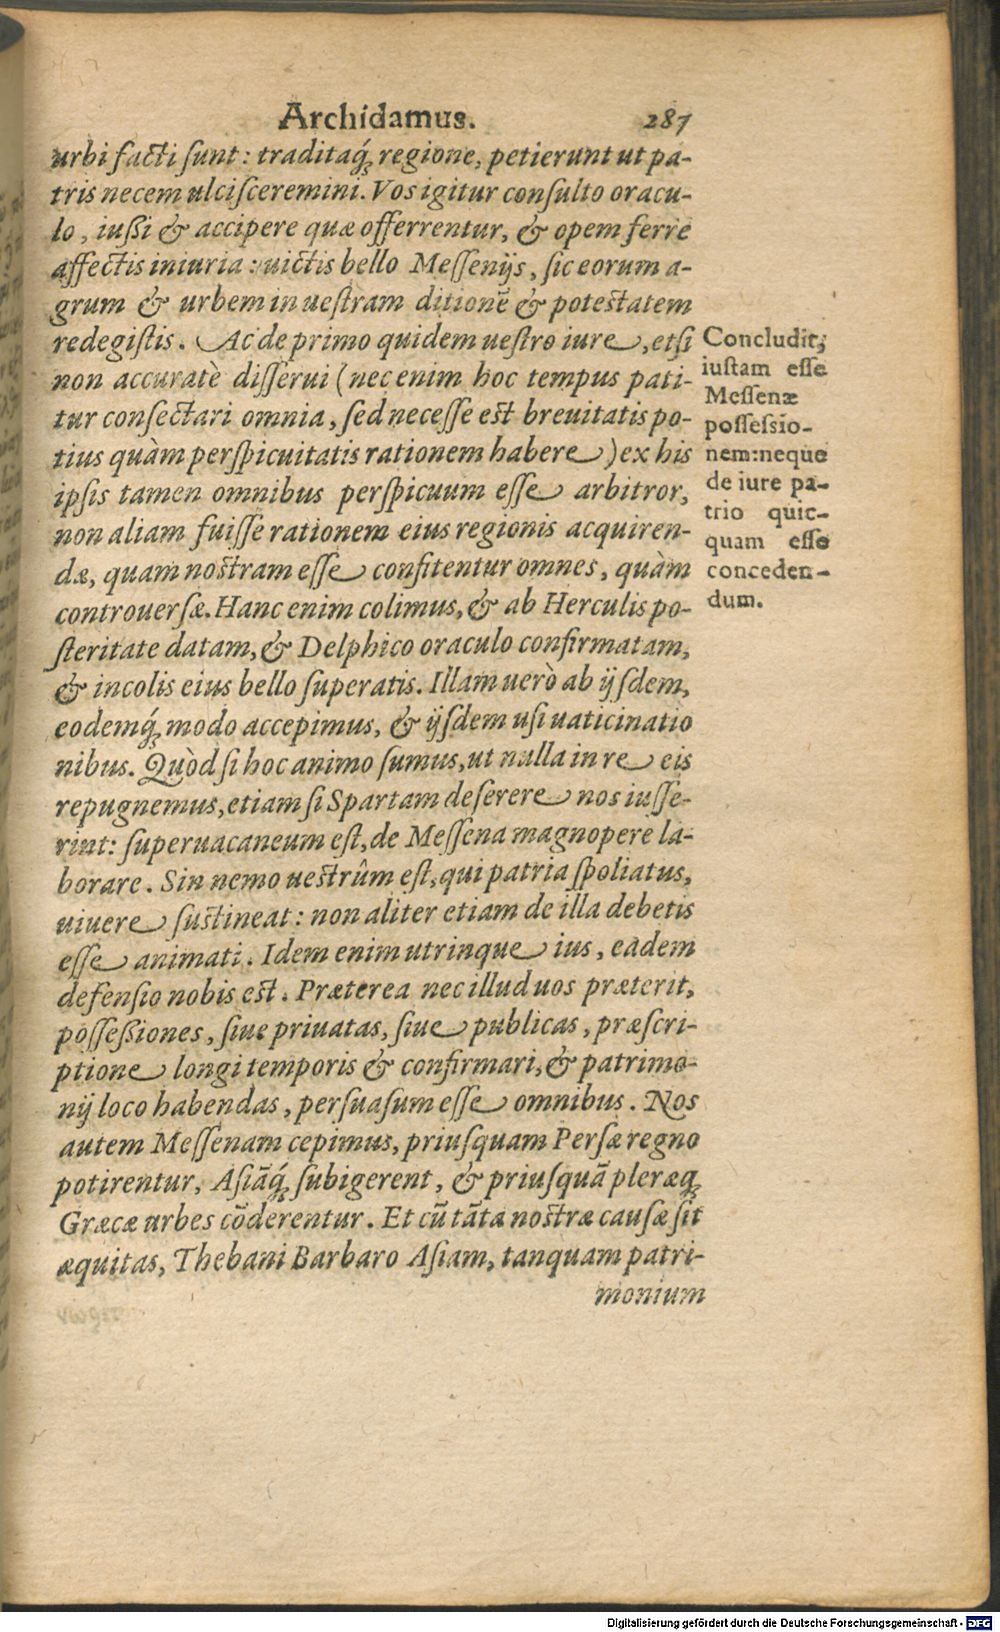 Archidamus. 287
urbi facti sunt: traditaq́ꝫ regione, petierunt ut pa-
tris necem ulcisceremini. Vos igitur consulto oracu-
lo, iussi & accipere quæ offerrentur, & opem ferre
affectis iniuria: uictis bello Messenijs, sic eorum a-
grum & urbem in uestram ditionē & potestatem
redegistis. Ac de primo quidem uestro iure, etsi
non accuratè disserui (nec enim hoc tempus pati-
tur consectari omnia, sed necesse est breuitatis po-
tius quàm perspicuitatis rationem habere) ex his
ipsis tamen omnibus perspicuum esse arbitror,
non aliam fuisse rationem eius regionis acquiren-
dæ, quam nostram esse confitentur omnes, quàm
controuersæ. Hanc enim colimus, & ab Herculis po-
steritate datam, & Delphico oraculo confirmatam,
& incolis eius bello superatis. Illam uerò ab ijsdem,
eodemq́ꝫ modo accepimus, & ijsdem usi uaticinatio
nibus. Quòd si hoc animo sumus, ut nulla in re eis
repugnemus, etiam si Spartam deserere nos iusse-
rint: superuacaneum est, de Messena magnopere la-
borare. Sin nemo uestrûm est, qui patria spoliatus,
uiuere sustineat: non aliter etiam de illa debetis
esse animati. Idem enim utrinque ius, eadem
defensio nobis est. Præterea nec illud uos præterit,
possessiones, siue priuatas, siue publicas, præscri-
ptione longi temporis & confirmari, & patrimo-
nij loco habendas, persuasum esse omnibus. Nos
autem Messenam cepimus, priusquam Persæ regno
potirentur, Asiāq́ꝫ subigerent, & priusquā pleræqꝫ
Græcæ urbes cōderentur. Et cū tāta nostræ causæ sit
æquitas, Thebani Barbaro Asiam, tanquam patri-
monium
Concludit,
iustam esse
Messenæ
possessio-
nem: neque
de iure pa-
trio quic-
quam esse
conceden-
dum.
Digitalisierung gefördert durch die Deutsche Forschungsgemeinschaft - DFG